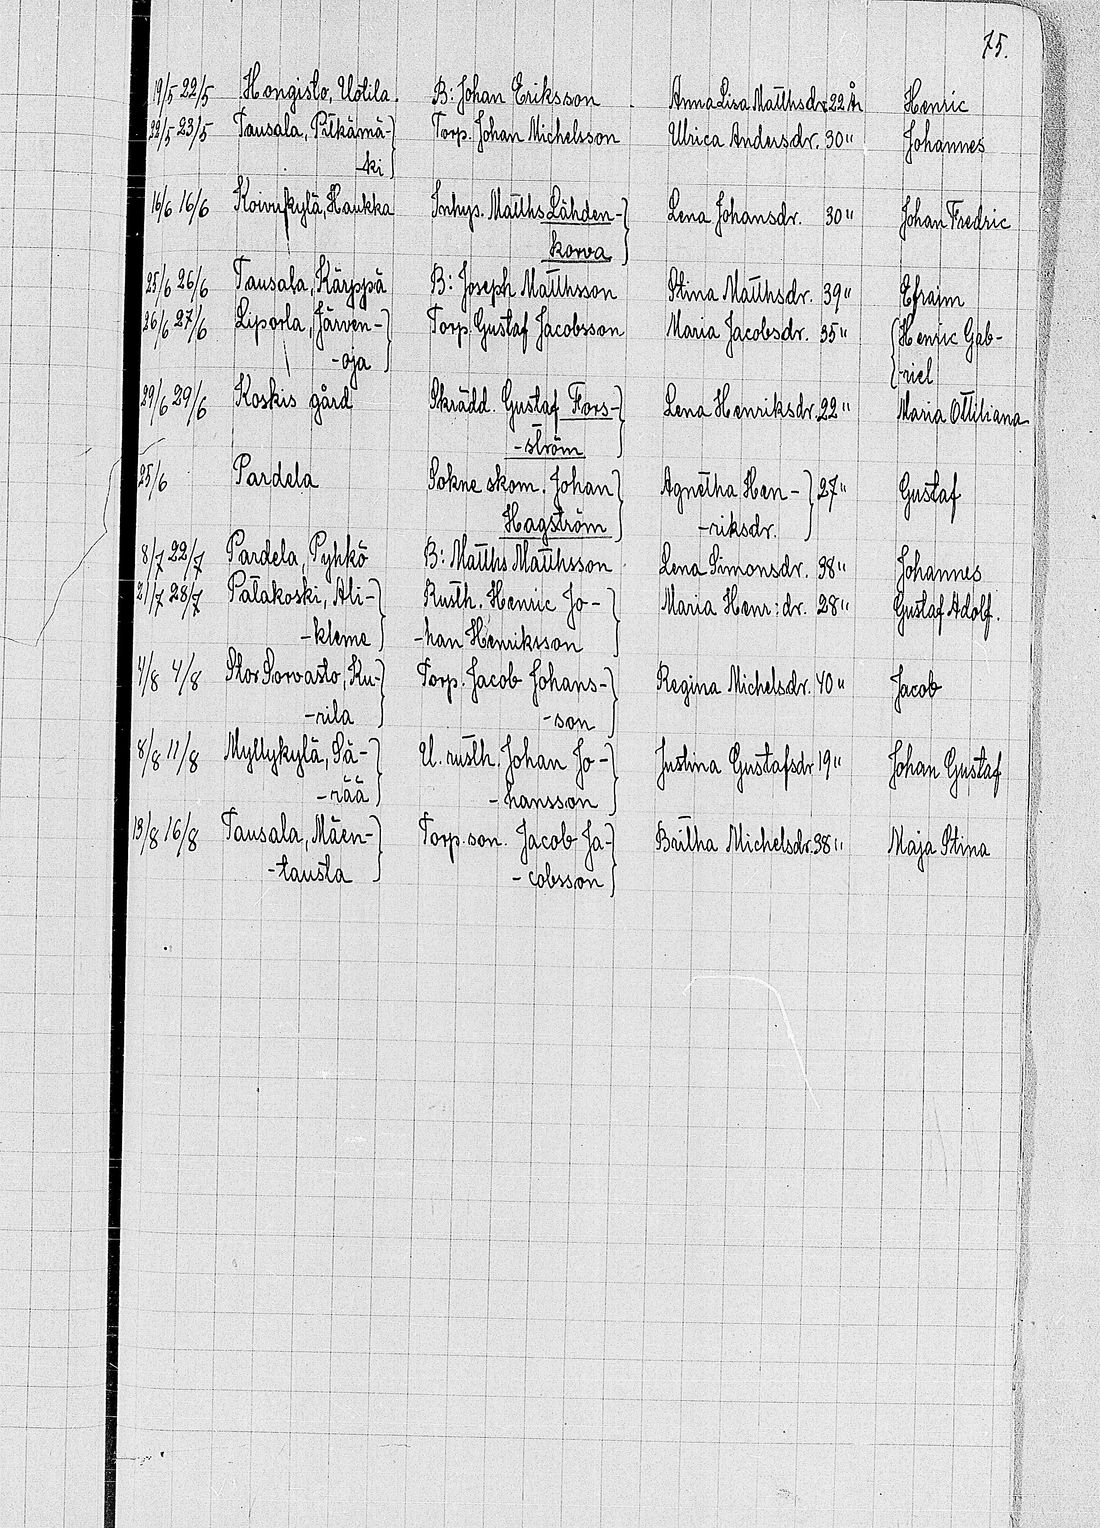 75.
19/5 22/5 Hongisto, Uotila. B: Johan Eriksson Anna Lisa Matthsdr. 22 År Henric
22/5 23/5 Tausala, Pitkämä-} Torp. Johan Michelsson Ulrica Andersdr. 30 " Johannes
-ki
16/6 16/6 Koivukylä, Haukka Inhys. Matths Lähden-} Lena Johansdr. 30 " Johan Fredric
korva
25/6 26/6 Tausala, Kärppä B: Joseph Matthsson Stina Matthsdr. 39 " Efraim
26/6 27/6 Liporla, Järven-} Torp. Gustaf Jacobsson Maria Jacobsdr. 35 " {Henric Gab-
-oja -riel
29/6 29/6 Koskis gård Skrädd. Gustaf Fors-} Lena Henriksdr. 22 " Maria Ottiliana
-ström
25/6 Pardela Sokne skom. Johan} Agnetha Hen-} 27 " Gustaf
Hagström -riksdr.
8/7 22/7 Pardela, Pyhkö B: Matths Matthsson Lena Simonsdr. 38 " Johannes
21/7 28/7 Patakoski, Ali-} Rusth. Henric Jo-} Maria Henr: dr. 28 " Gustaf Adolf.
-kleme -han Henriksson
4/8 4/8 Stor Sorvasto, Ku-} Torp. Jacob Johans-} Regina Michelsdr. 40 " Jacob
-rila -son
8/8 11/8 Myllykylä, Sä-} U. rusth. Johan Jo-} Justina Gustafsdr 19 " Johan Gustaf
-rää -hansson
13/8 16/8 Tausala, Mäen-} Torp. son. Jacob Ja-} Britha Michelsdr. 38 " Maja Stina
-tausta -cobsson